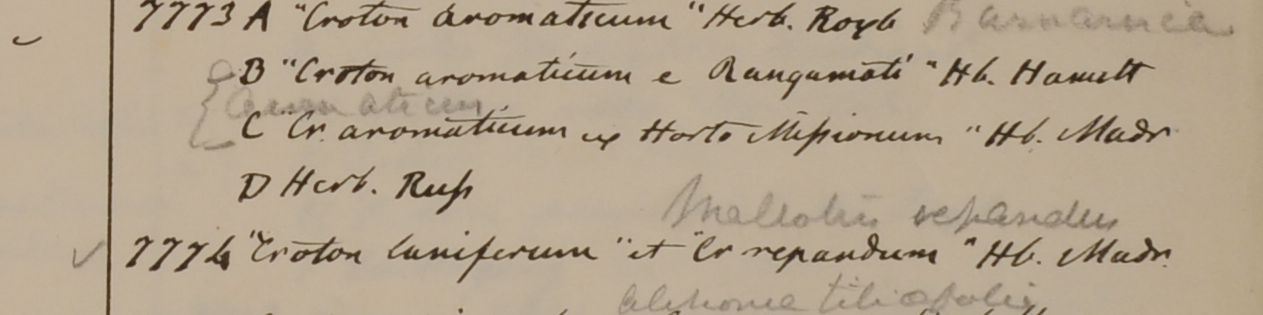 7773 A "Croton aromaticum" Herb. Roxb
B "Croton aromaticum e Rangamati" Hb. Hamilt
aromaticum
C Cr. aromaticum ex Horto Missionum" Hb. Madr
D Herb. Russ
Mallotus repandus
7774 "Croton laniferum" et "Cr repandum" Hb. Madr.